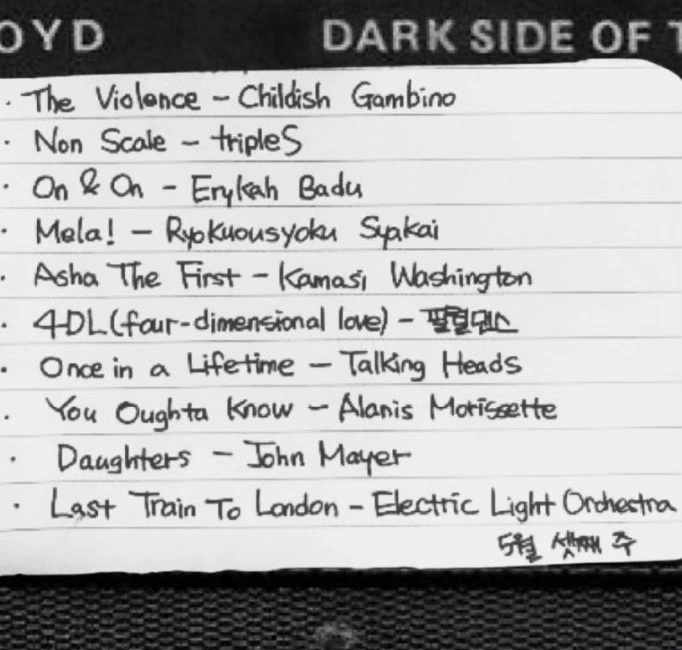 OYD DARK SIDE OF T
· The Violence - Childish Gambino
· Non Scale - tripleS
· On & On - Erykah Badu
· Mela! - Ryokuousyoku Syakai
· Asha The First - Kamasi Washington
· 4DL (four-dimensional love) -
· Once in a Lifetime - Talking Heads
· You Oughta Know - Alanis Morissette
· Daughters - John Mayer
· Last Train To London - Electric Light Orchestra
5월 셋째 주